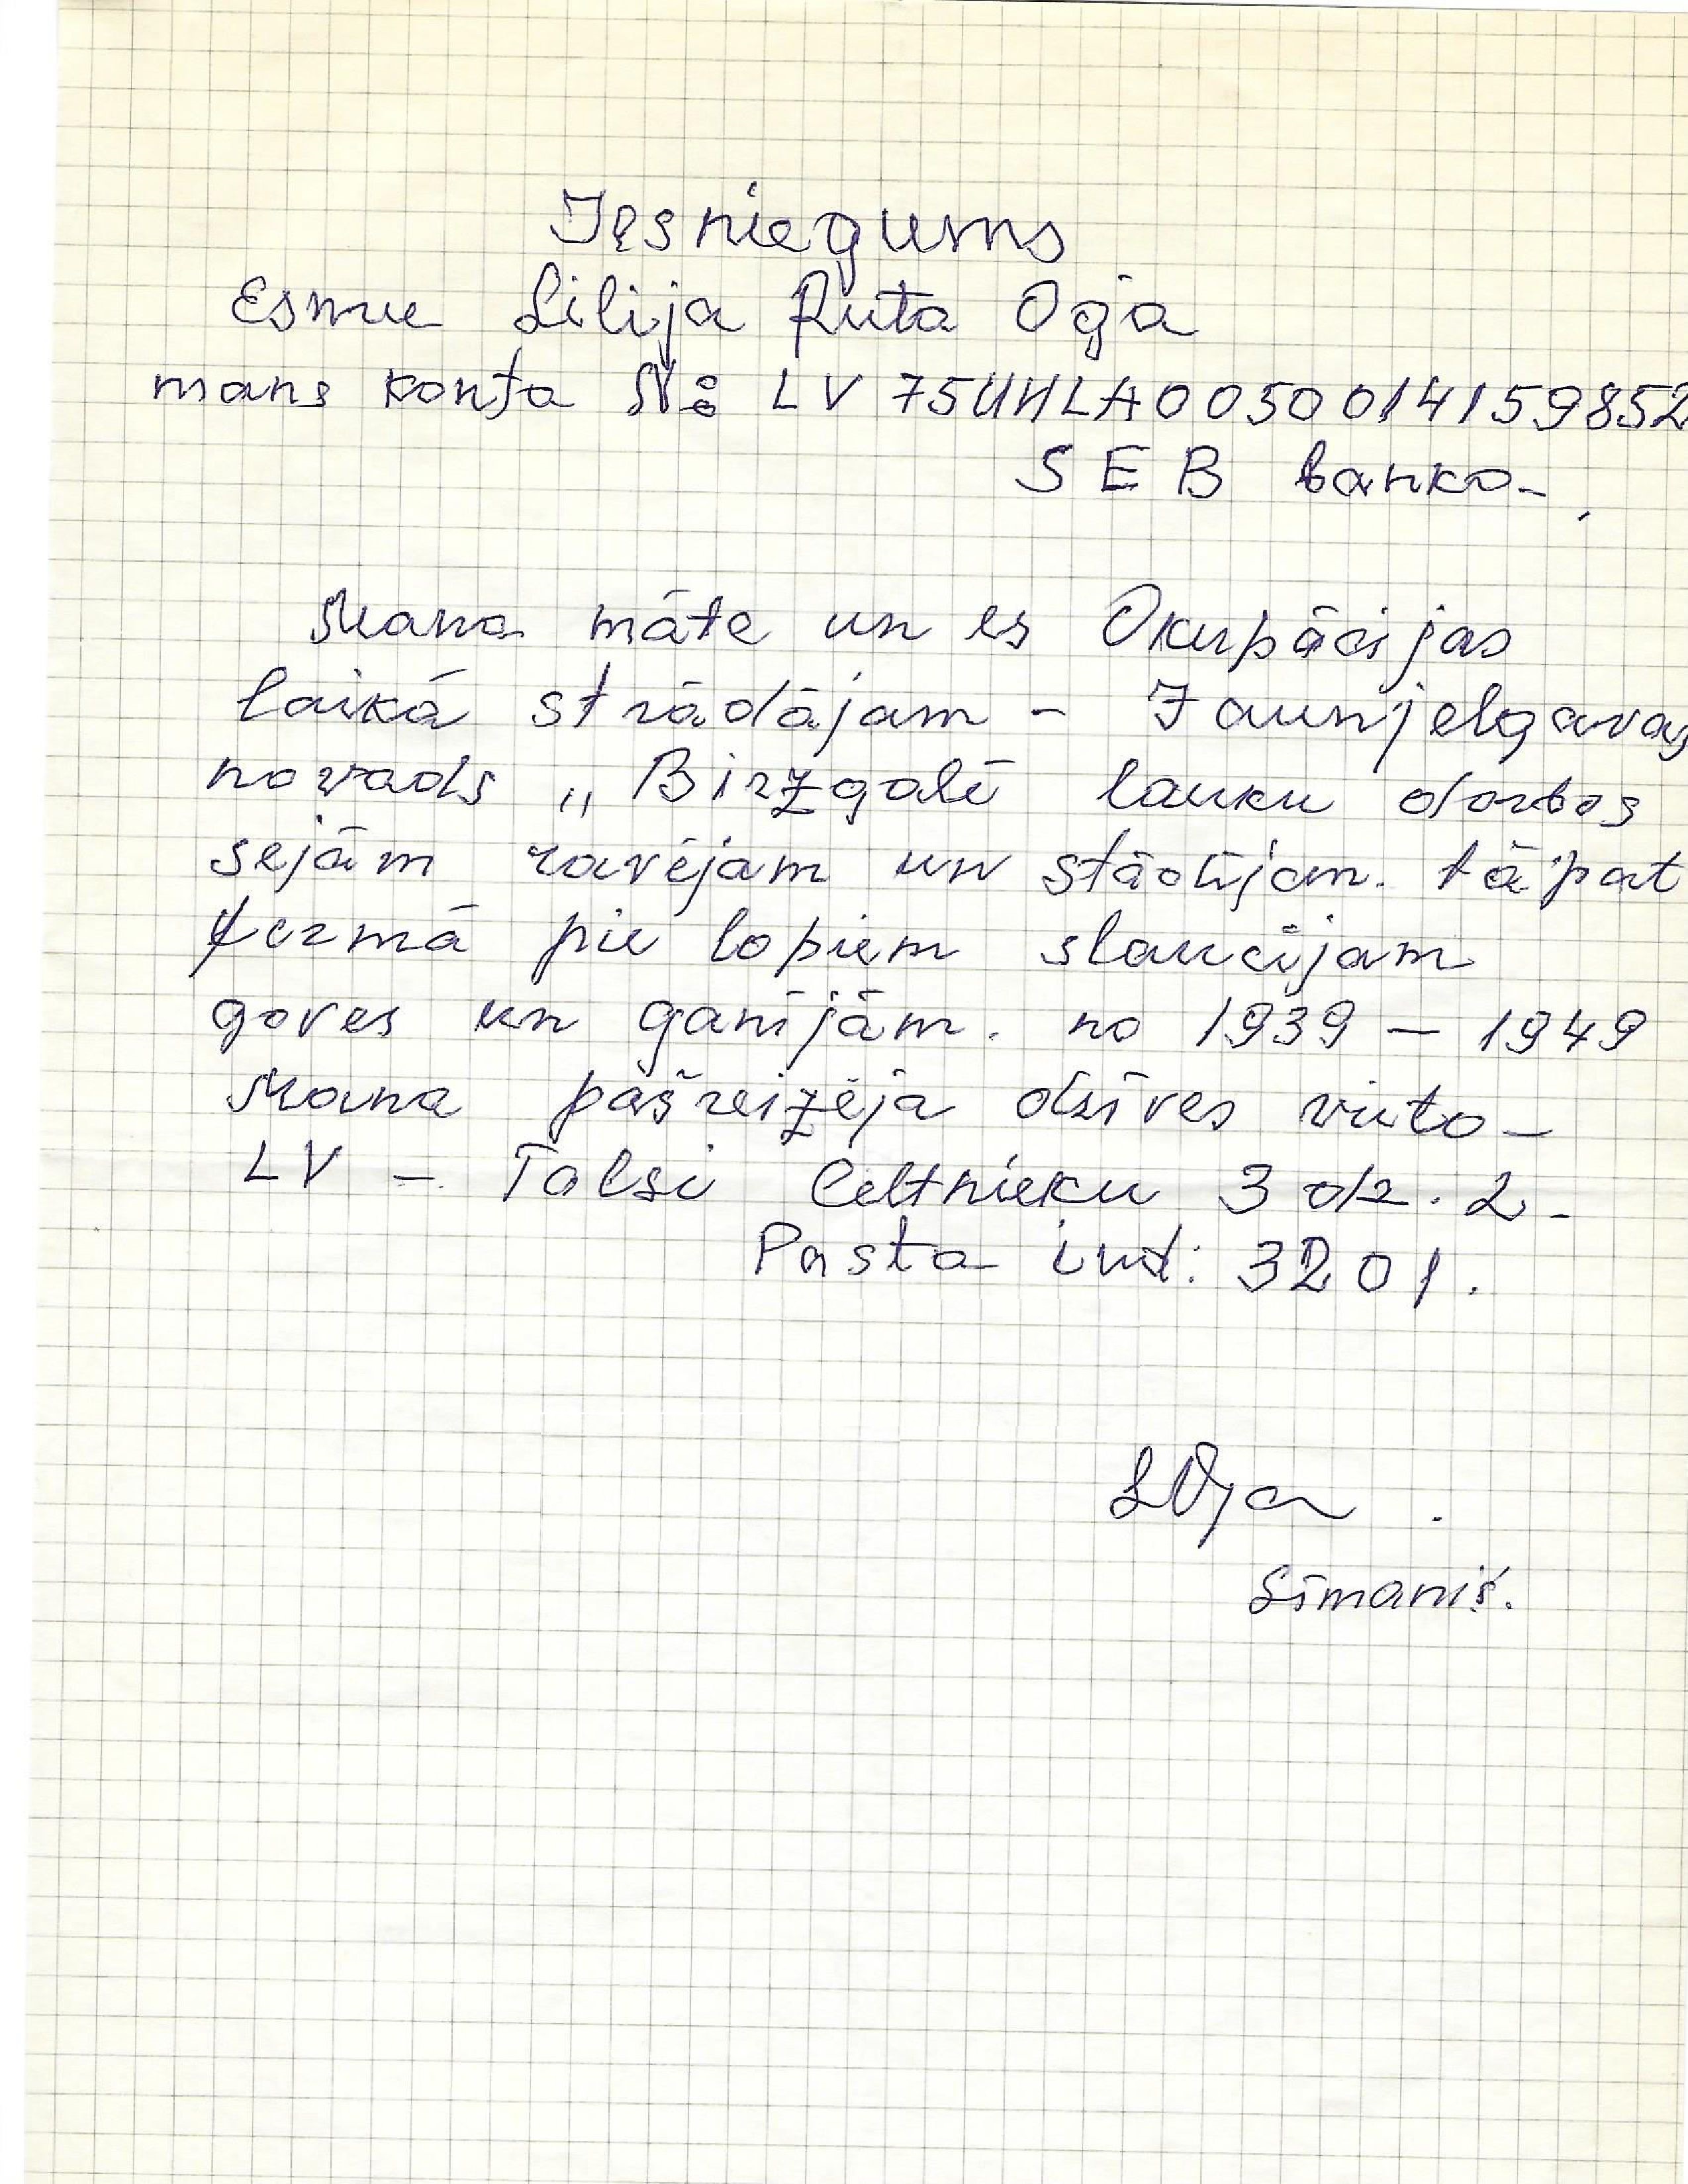 Iesniegums
Esmu Lilija Ruta Oga
mans konta №: LV 75UNLA0050014159852
SEB banka-,
Mana māte un es Okupācijas
laikā strādājam - Jaunjelgavas
novads „Birzgalē lauku darbos
sējām ravējam un stādījam. tāpat
fermā pie lopiem slaucījam
goves un ganījām. no 1939 - 1949
Mana pašreizējā dzīves vieta -
LV - Talsi Celtnieku 3 dz. 2.
Pasta ind: 3201.
LOga.